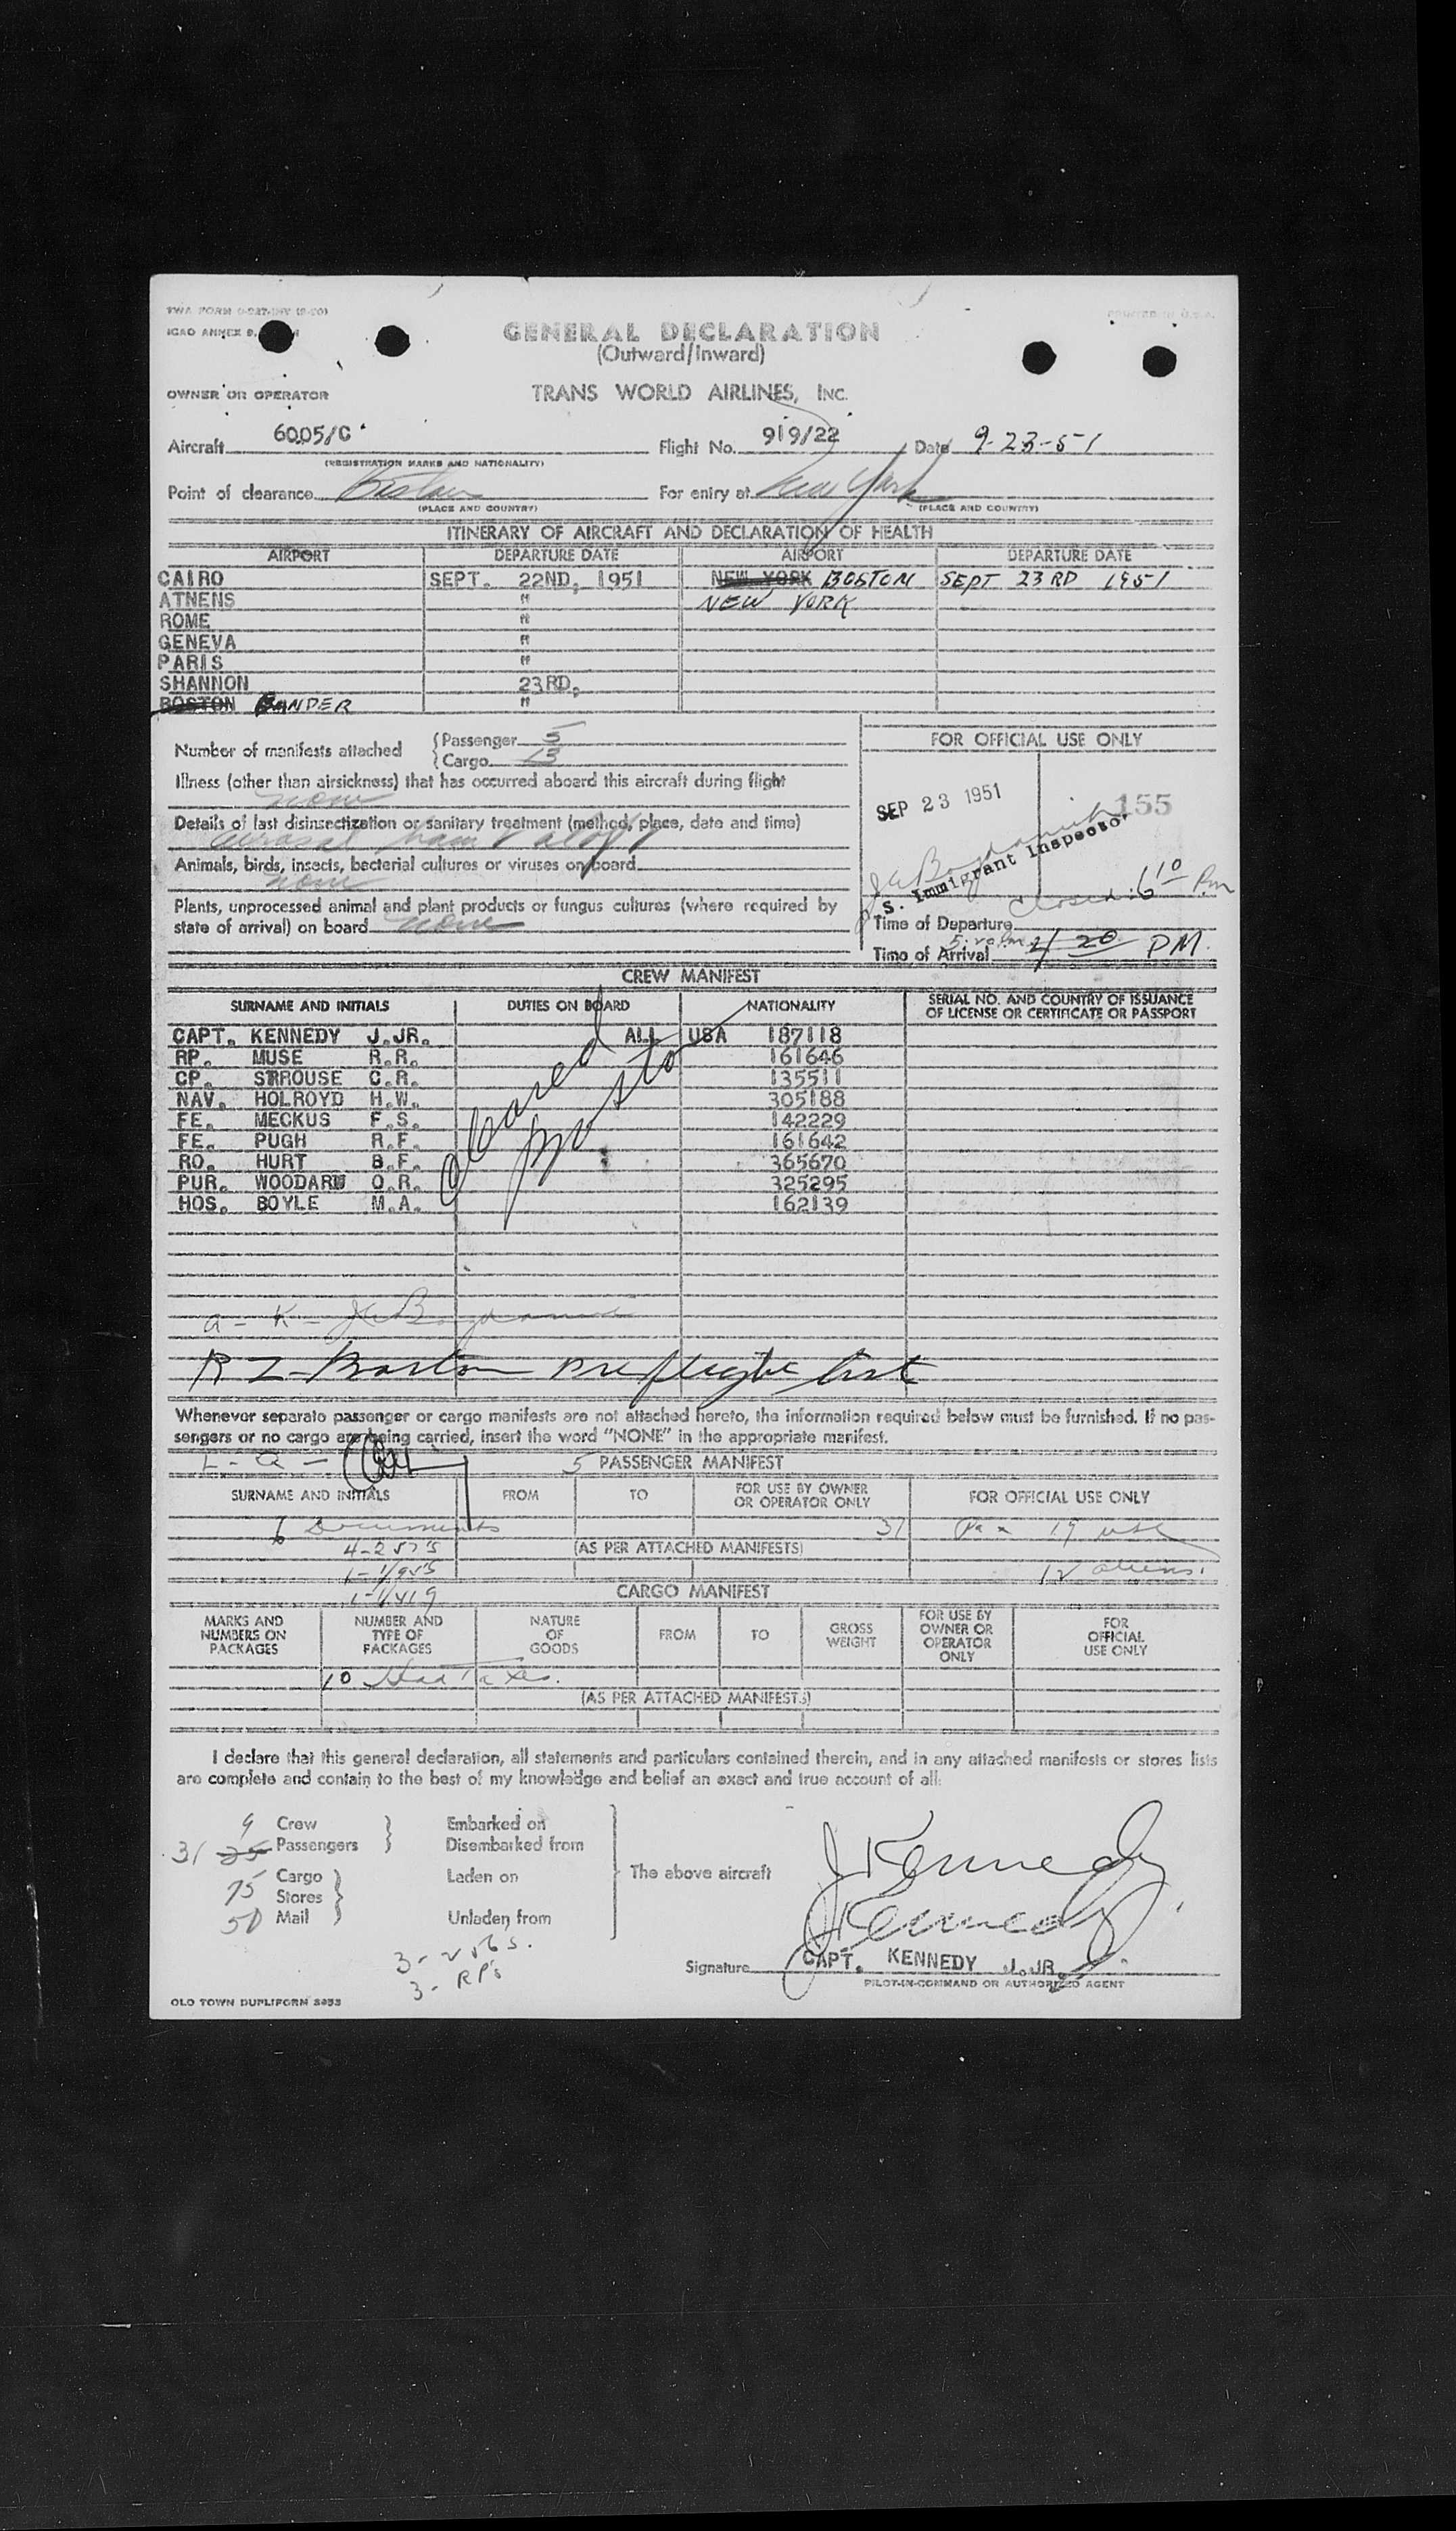 TWA FORM
ICAO ANNEX 9,
GENERAL DECLARATION
(Outward/Inward)
OWNER OR OPERATOR TRANS WORLD AIRLINES, INC.
Aircraft 6005/C Flight No. 919/22 Date 9-23-51
(REGISTRATION MARKS AND NATIONALITY)
Point of clearance Boston For entry at New York
(PLACE AND COUNTRY) (PLACE AND COUNTRY)
ITINERARY OF AIRCRAFT AND DECLARATION OF HEALTH
AIRPORT DEPARTURE DATE AIRPORT DEPARTURE DATE
CAIRO SEPT. 22ND, 1951 NEW YORK BOSTON SEPT 23RD 1951
ATNENS " NEW YORK
ROME "
GENEVA "
PARIS "
SHANNON 23RD,
BOSTON GANDER "
Number of manifests attached Passenger 5
Cargo 13
FOR OFFICIAL USE ONLY
Illness (other than airsickness) that has occurred aboard this aircraft during flight
none
SEP 23 1951
155
Details of last disinsectization or sanitary treatment (method, place, date and time)
aerosol
Animals, birds, insects, bacterial cultures or viruses on board
none
S. Immigrant Inspector
Plants, unprocessed animal and plant products or fungus cultures (where required by
state of arrival) on board none
closed: 6 10 Pm
Time of Departure
Time of Arrival 4 20 PM.
CREW MANIFEST
SURNAME AND INITIALS DUTIES ON BOARD NATIONALITY SERIAL NO. AND COUNTRY OF ISSUANCE
OF LICENSE OR CERTIFICATE OR PASSPORT
CAPT. KENNEDY J.JR. ALL USA 187118
RP. MUSE R.R. 161646
CP. STROUSE C.R. 135511
NAV. HOLROYD H.W. 305188
FE. MECKUS F.S. 142229
FE. PUGH R.F. 161642
RO. HURT B.F. 365670
PUR. WOODARD O.R. 325295
HOS. BOYLE M.A. 162139
Cleared
Boston
a - K -
R Z - Boston preflight list
Whenever separate passenger or cargo manifests are not attached hereto, the information required below must be furnished. If no pas-
sengers or no cargo are being carried, insert the word "NONE" in the appropriate manifest.
L - Q -
5 PASSENGER MANIFEST
SURNAME AND INITIALS FROM TO FOR USE BY OWNER
OR OPERATOR ONLY FOR OFFICIAL USE ONLY
6 Documents 31 Pax 19 usc
4-257's (AS PER ATTACHED MANIFESTS)
12 aliens.
1-1/419 CARGO MANIFEST
MARKS AND
NUMBERS ON
PACKAGES NUMBER AND
TYPE OF
PACKAGES NATURE
OF
GOODS FROM TO GROSS
WEIGHT FOR USE BY
OWNER OR
OPERATOR
ONLY FOR
OFFICIAL
USE ONLY
10 Head Taxes.
(AS PER ATTACHED MANIFESTS)
I declare that this general declaration, all statements and particulars contained therein, and in any attached manifests or stores lists
are complete and contain to the best of my knowledge and belief an exact and true account of all:
9 Crew Embarked on
31 35 Passengers Disembarked from
75 Cargo Laden on The above aircraft
Stores
50 Mail Unladen from
J Kennedy
J Kennedy
3-
3- RP's
Signature CAPT. KENNEDY J.JR.
PILOT-IN-COMMAND OR AUTHORIZED AGENT
OLD TOWN DUPLIFORM